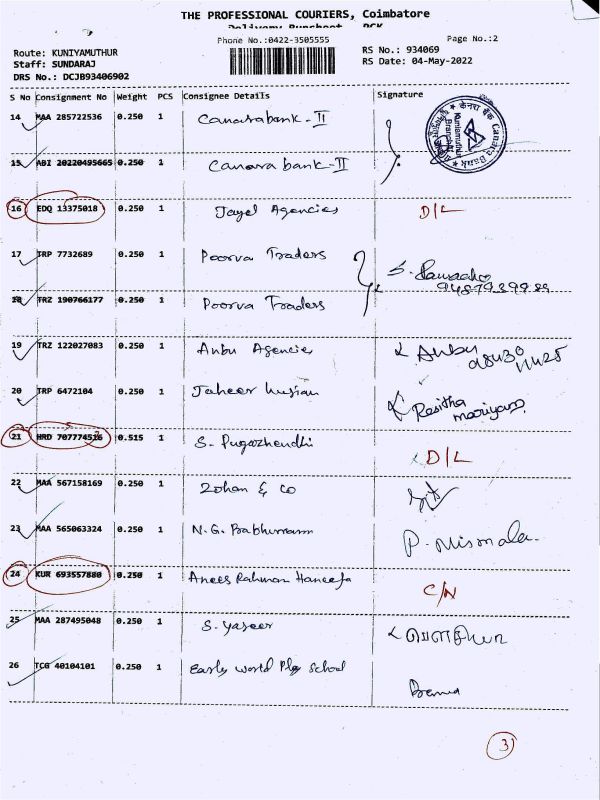 THE PROFESSIONAL COURIERS, Coimbatore
Delivery Runsheet
Phone No.:0422-3505555 Page No.:2
Route: KUNIYAMUTHUR RS No.: 934069
Staff: SUNDARAJ RS Date: 04-May-2022
DRS No.: DCJB93406902
S No Consignment No Weight PCS Consignee Details Signature
14 MAA 285722536 0.250 1 Canarabank-II
केनरा बैंक Canara Bank Kuniamuthur Branch
15 ABI 20220495665 0.250 1 Canara bank-II
16 EDQ 13375018 0.250 1 Jayel Agencies D/L
17 TRP 7732689 0.250 1 Poorva Traders
18 TRZ 190766177 0.250 1 Poorva Traders
19 TRZ 122027083 0.250 1 Anbu Agencies Anbu
20 TRP 6472104 0.250 1 Jaheer husian Rasitha mariyam
21 HRD 707774516 0.515 1 S. Pugazhendhi D/L
22 MAA 567158169 0.250 1 Zohan & co
23 MAA 565063324 0.250 1 N.G. Prabhuram P. Nirmala.
24 KUR 693557880 0.250 1 Anees Rahman Haneefa C/N
25 MAA 287495048 0.250 1 S. Yaseer
26 TCG 40104101 0.250 1 Early world Play School Prema
3